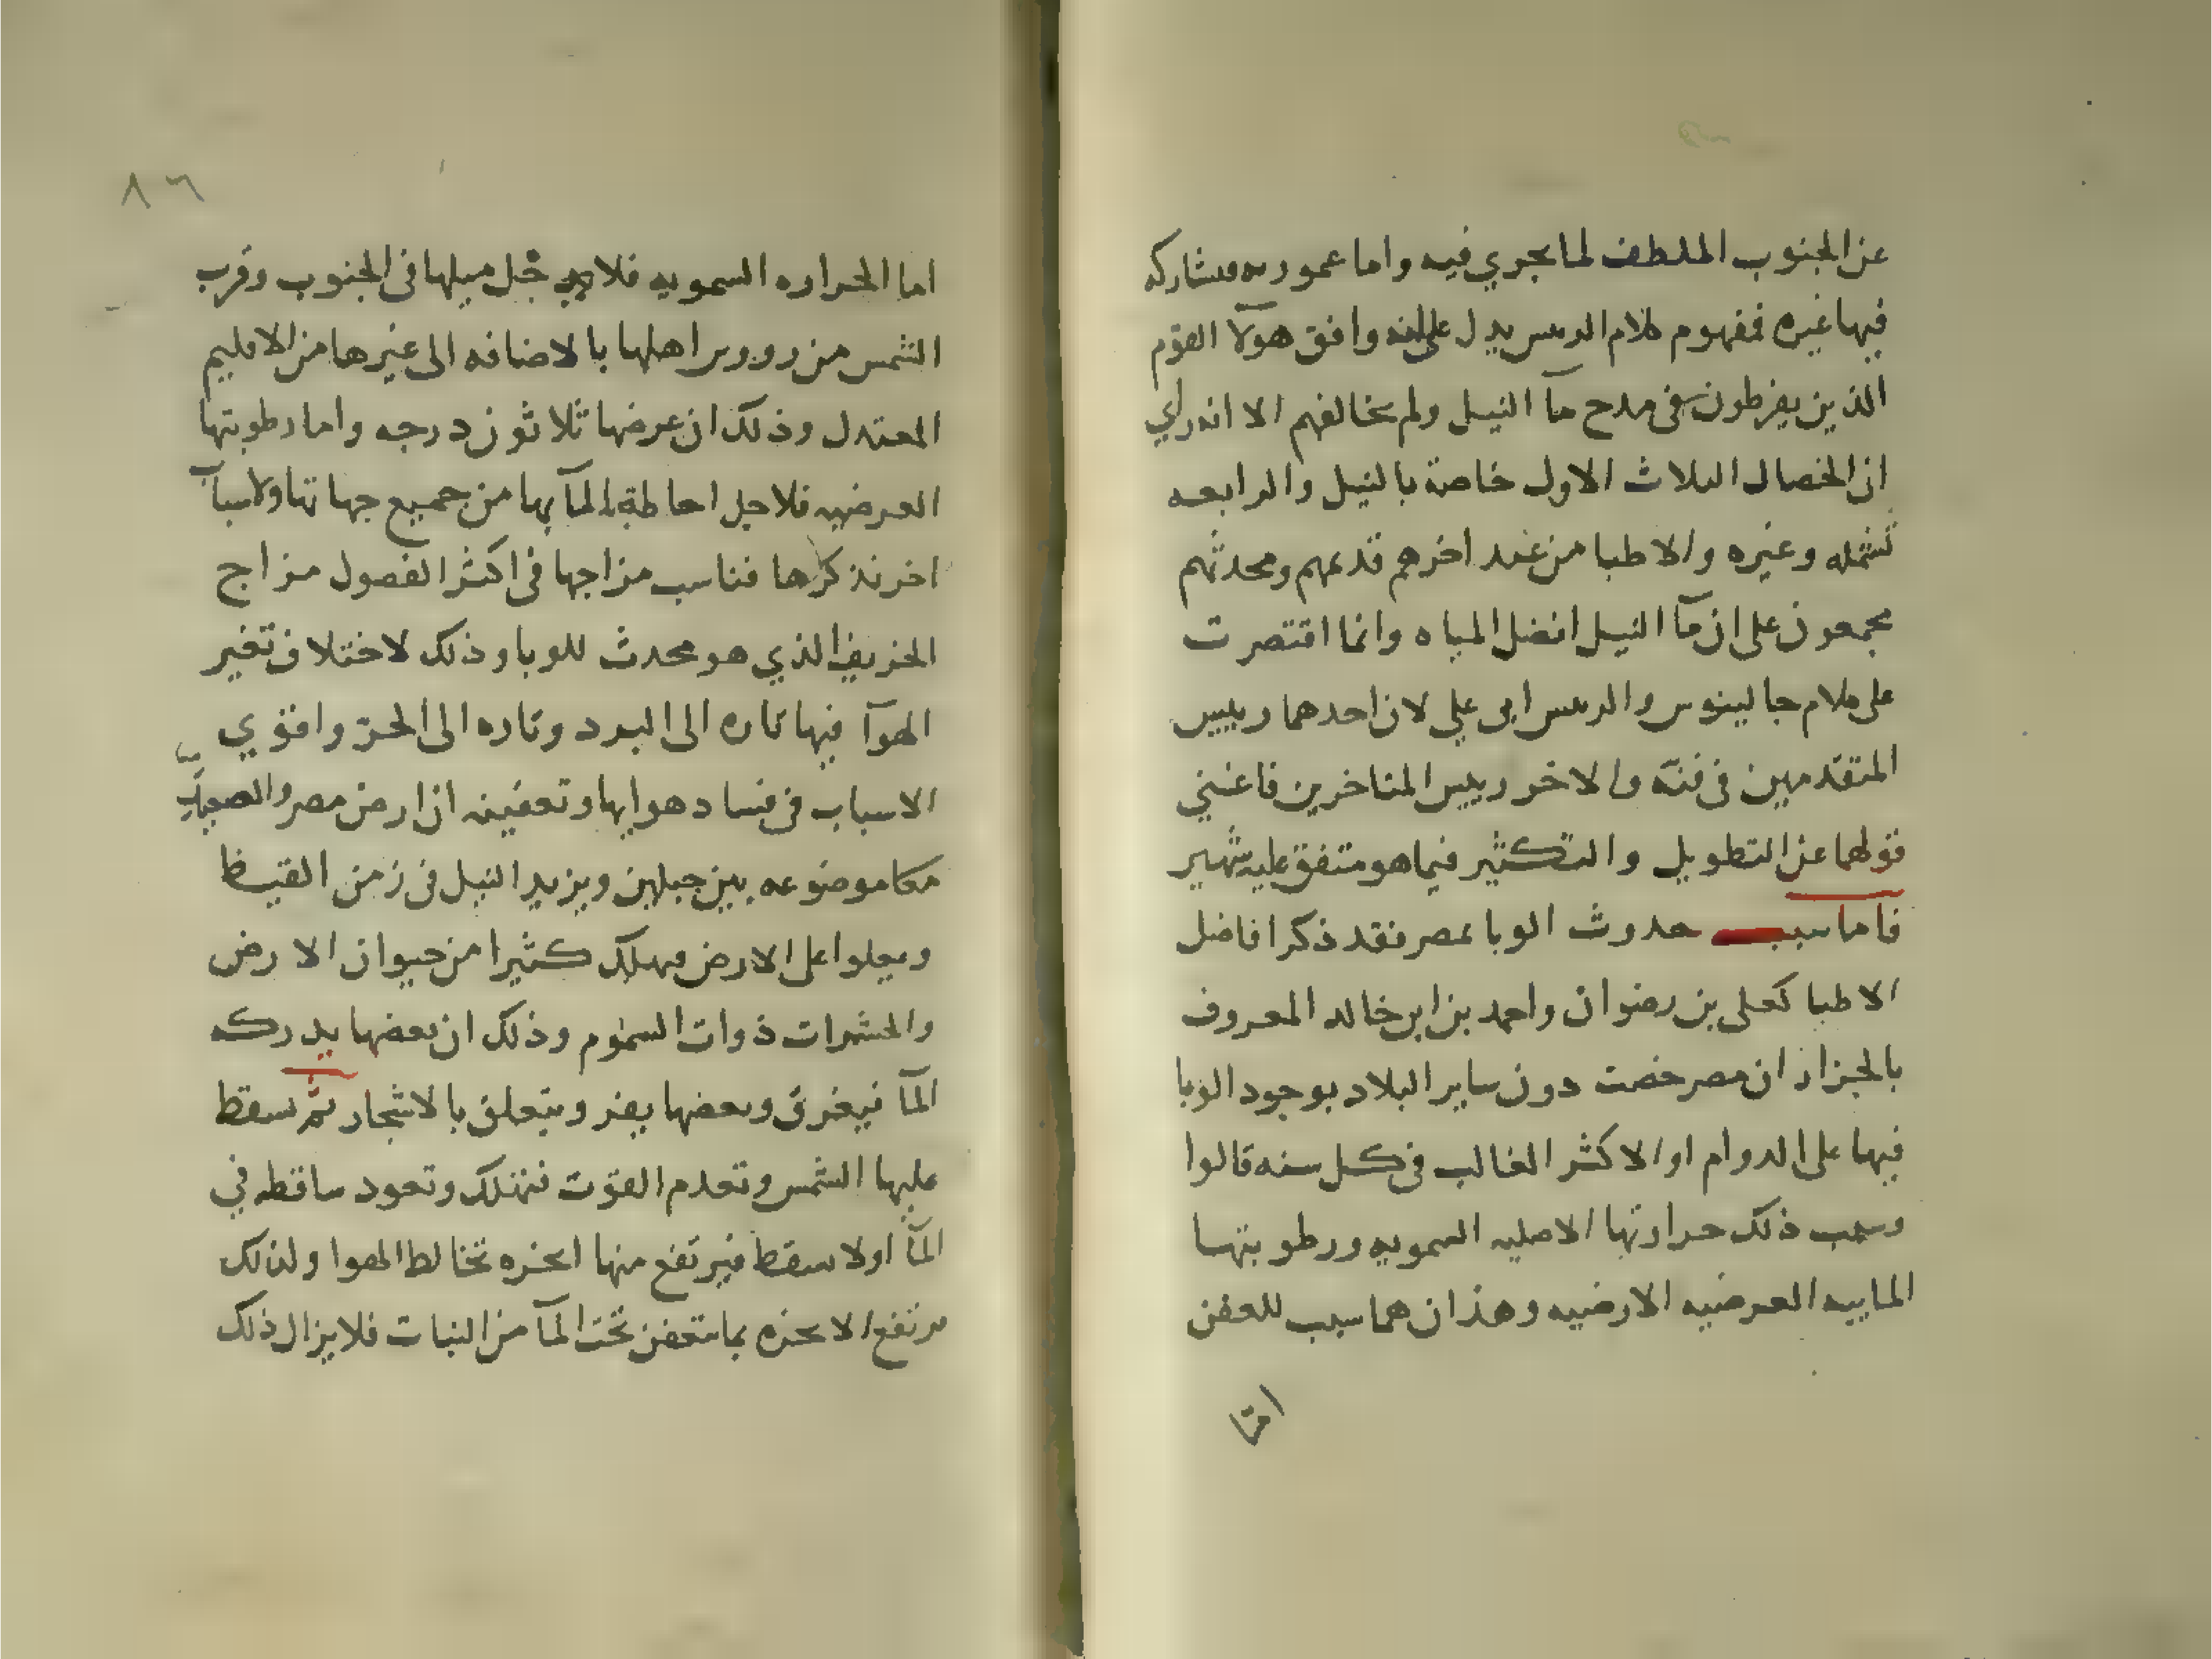 عن الجنوب الملطف لما يجري فيه واما عموريه فشاركه
فيها غيره فمفهوم كلام الرييس يدل على انه وافق هولآ القوم
الذين يفرطون في مدح مآ النيل ولم يخالفهم الا انه راي
ان الخصال الثلاث الاول خاصة بالنيل والرابعه
تشمله وغيره والاطبا من عند اخرهم قديمهم ومحدثهم
مجمعون على ان مآ النيل افضل المياه وانما اقتصرت
على كلام جالينوس والرييس ابى علي لان احدهما رييس
المتقدمين في فنه والاخر رييس المتاخرين فاغني
قولهما عن التطويل والتكثير فيما هو متفق عليه شهير
فاما سبب حدوث الوبا بمصر فقد ذكر افاضل
الاطبا كعلى بن رضوان واحمد بن ابن خالد المعروف
بالجزار ان مصر خصت دون ساير البلاد بوجود الوبا
فيها على الدوام او الاكثر الغالب في كل سنه قالوا
وسبب ذلك حرارتها الاصليه السمويه ورطوبتها
الماييه العرضيه الارضيه وهذان هما سبب للعفن
امّا
٨٦
اما الحراره السمويه فلا جل ميلها في الجنوب وقرب
الشمس من روورس اهلها بالاضافه الى غيرها من الاقليم
المعتدل وذلك ان عرضها ثلاثون درجه واما رطوبتها
العرضيه فلاجل احاطة المآ بها من جميع جهاتها ولاسباب
اخر نذكرها فناسب مزاجها في اكثر الفصول مزاج
الخريف الذي هو محدث للوبا وذلك لاختلاف تغير
الهوآ فيها تاره الى البرد وتاره الى الحرّ واقوي
الاسباب في فساد هوايها وتعفينه ان ارض مصر والصعيد
مكا موضوعه بين جبلين ويزيد النيل في زمن القيظ
ويعلوا على الارض فيهلك كثيرا من حيوان الارض
والحشرات ذوات السموم وذلك ان بعضها يدركه
المآ فيغرق وبعضها يفر ويتعلق بالاشجار ثمّ سقط
عليها الشمس وتعدم القوت فتهلك وتعود ساقطه في
المآ اولا سقط فيرتفع منها ابخره تخالط الهوا ولذلك
يرتفع الابخره بما يتعفن تحت المآ من النبات فلا يزال ذلك